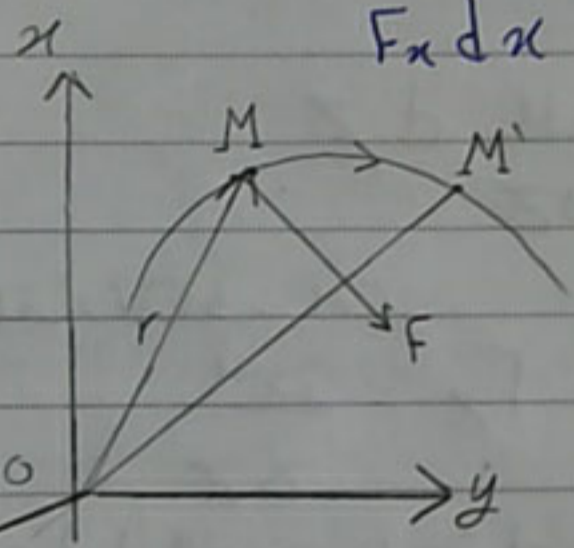 x
F_x dx
M
M'
r
F
O
y